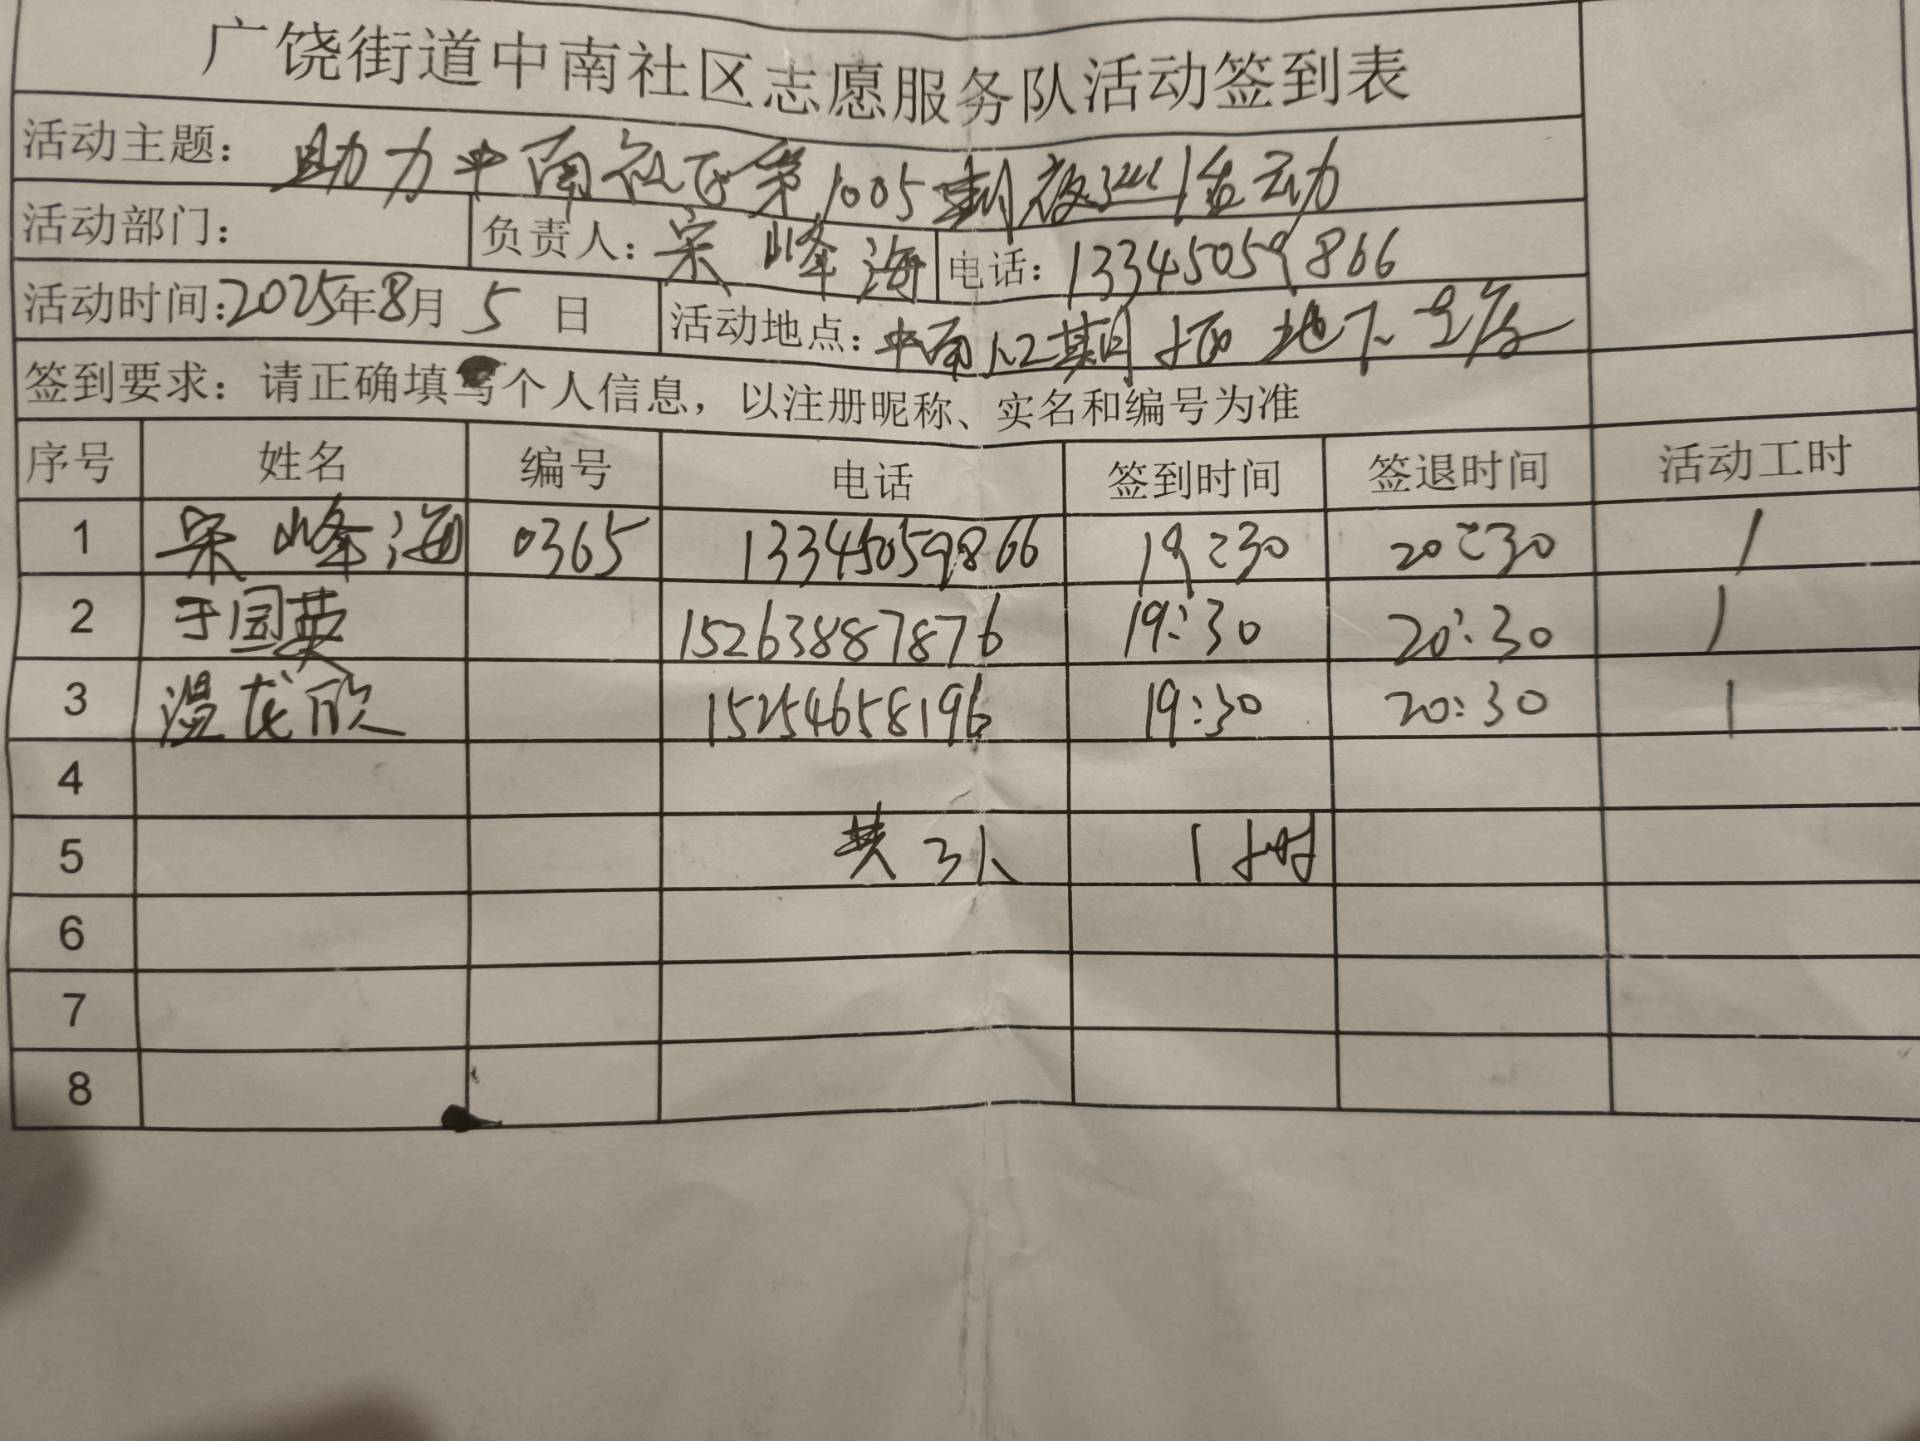 广饶街道中南社区志愿服务队活动签到表
活动主题：助力中南社区第1005 夜巡活动
活动部门： 负责人：宋峰海 电话：13345059866
活动时间：2025年8月5日 活动地点：中南 期 地下
签到要求：请正确填写个人信息，以注册昵称、实名和编号为准
序号 姓名 编号 电话 签到时间 签退时间 活动工时
1 宋峰海 0365 13345059866 19:30 20:30 1
2 于国英 15263887876 19:30 20:30 1
3 温龙欣 15254658196 19:30 20:30 1
4
5 共3人 1小时
6
7
8